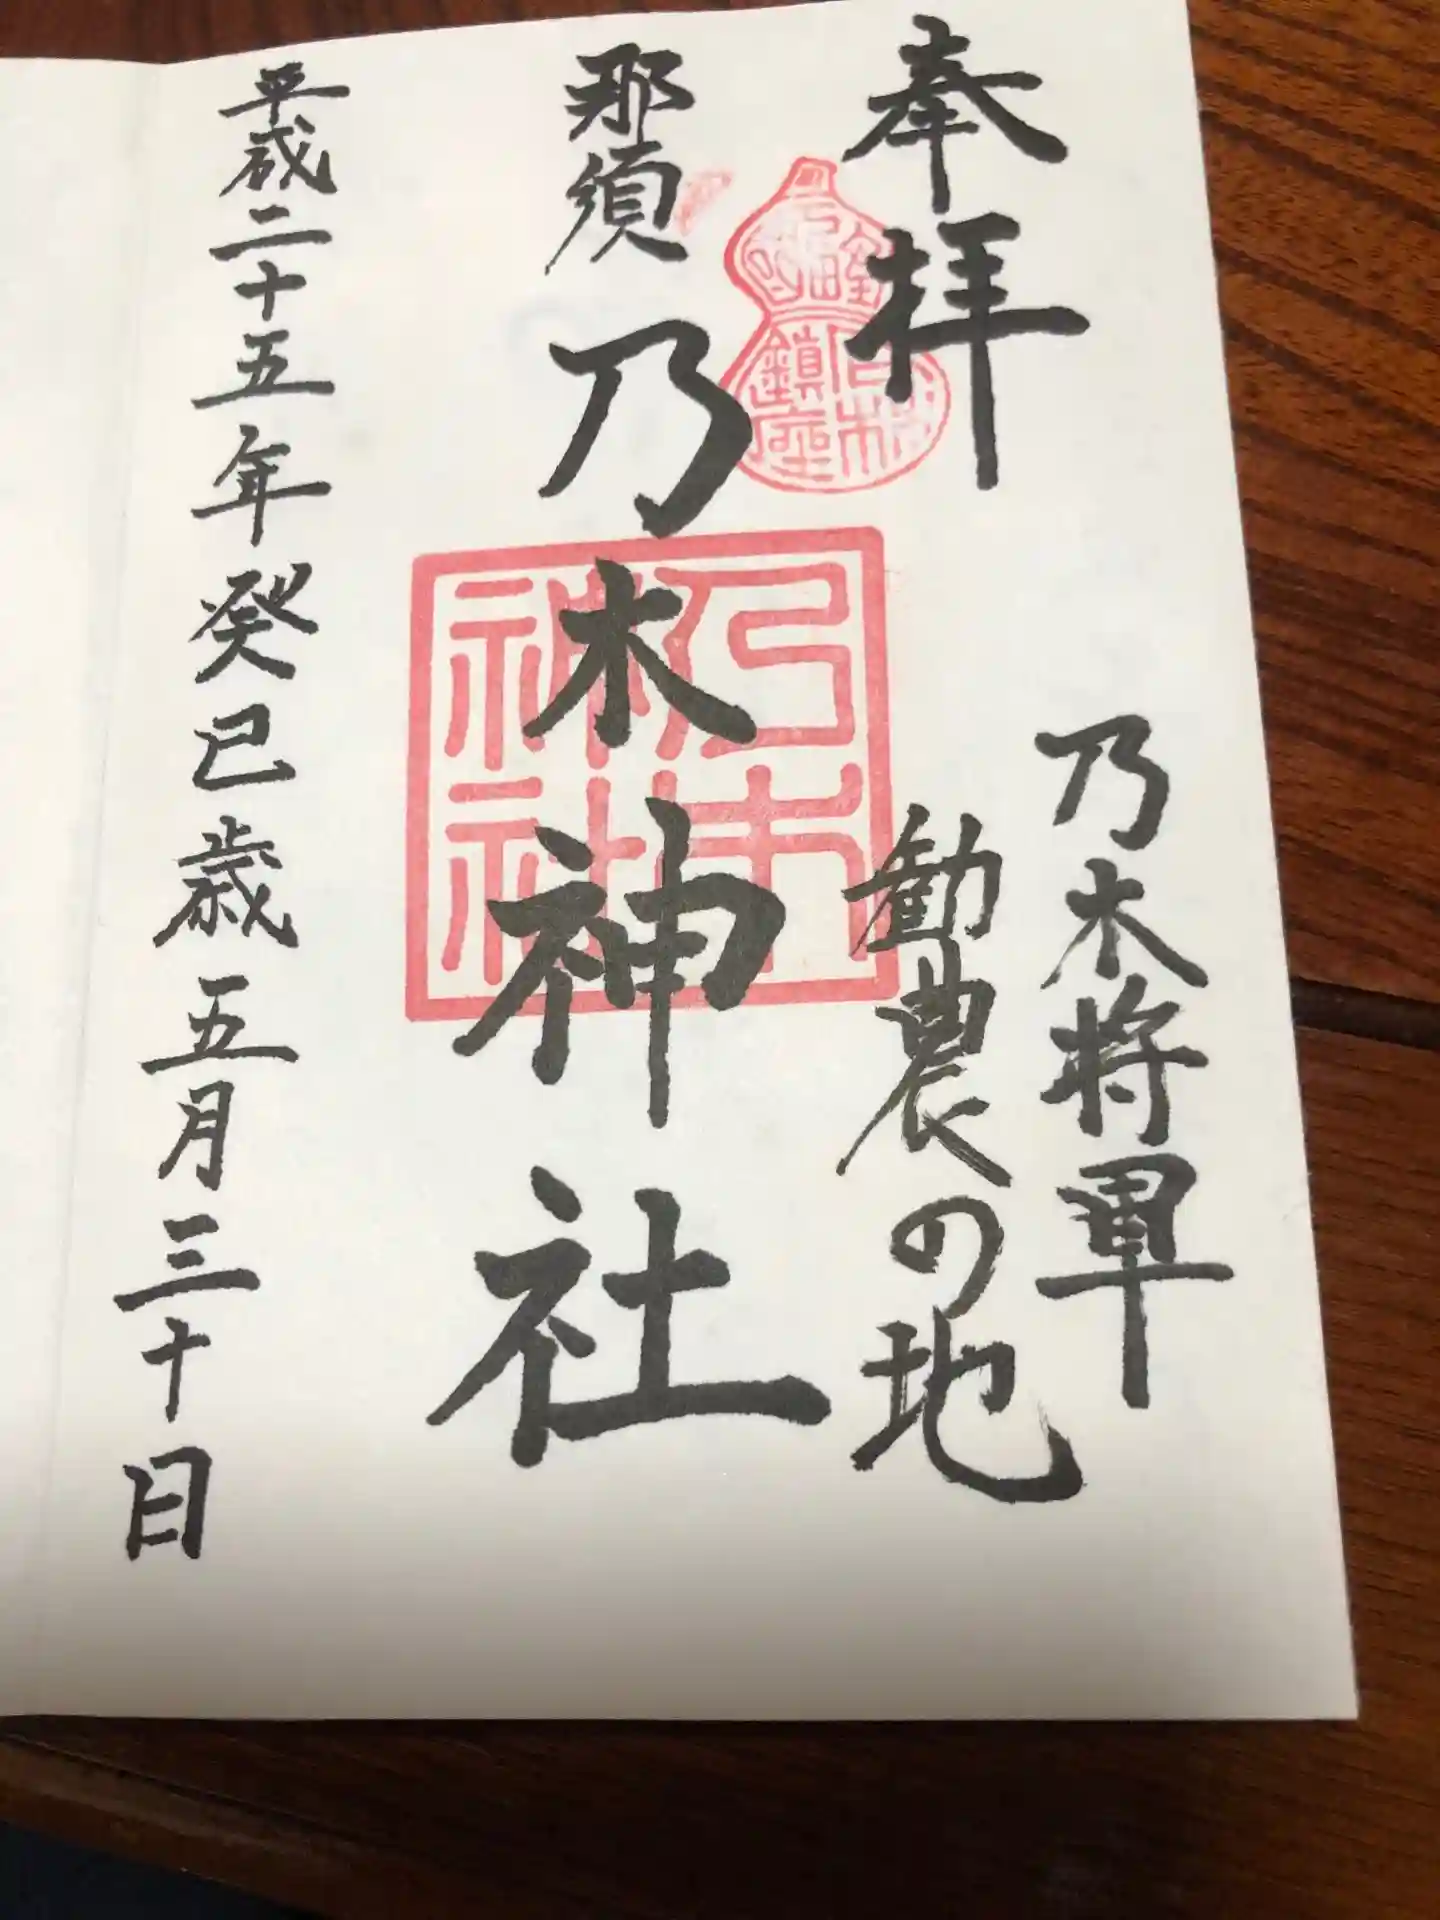 奉拝
乃木将軍
勧農の地
那須 乃木神社
平成二十五年癸巳歳五月三十日
乃木神社
鎮座